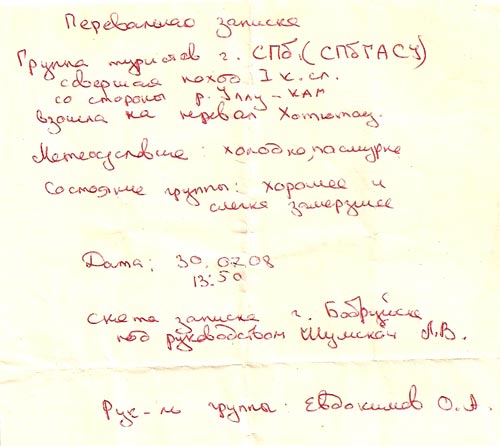 Перевальная записка
Группа туристов г. СПб. (СПбГАСУ)
совершая поход I к.сл.
со стороны р. Уллу-КАМ
взошла на перевал Хотютау.
Метеоусловие: холодно, пасмурно
Состояние группы: хорошее и
слегка замерзшее
Дата: 30.07.08
13:50
снята записка г. Бобруйск
под руководством Шумской Л.В.
Рук-ль группы: Евдокимов О.А.